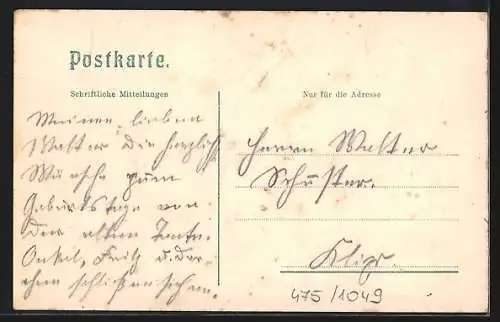 Postkarte.
Schriftliche Mitteilungen
Nur für die Adresse
Meinem lieben
Walter die herzlich
Wünsche zum
Geburtstage von
der alten Tante.
Onkel, Fritz u.
schließen sich an.
Herrn Walter
Schuster.
475/1049